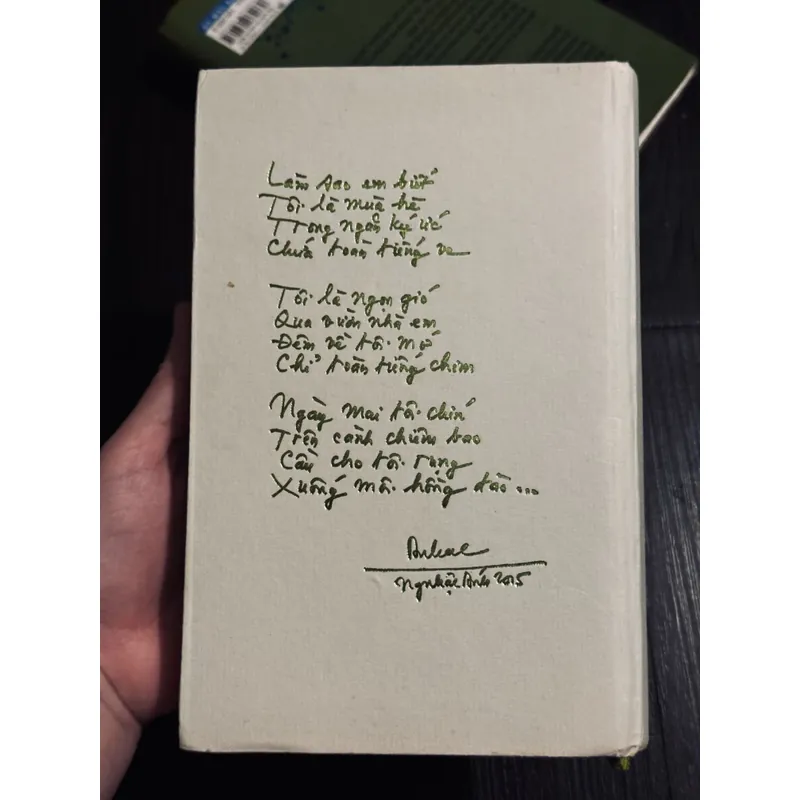 Làm sao em biết
Tôi là mùa hè
Trong ngăn ký ức
Chứa toàn tiếng ve
Tôi là ngọn gió
Qua vườn nhà em
Đêm về tôi mớ
Chỉ toàn tiếng chim
Ngày mai tôi chín
Trên cành chiêm bao
Cầu cho tôi rụng
Xuống môi hồng đào...
Nguhật Ánh 2015